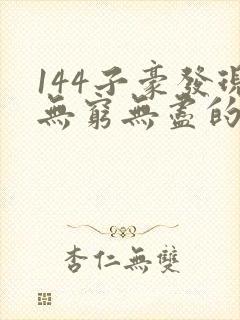 144子豪發現
無窮無盡的
杏仁無雙